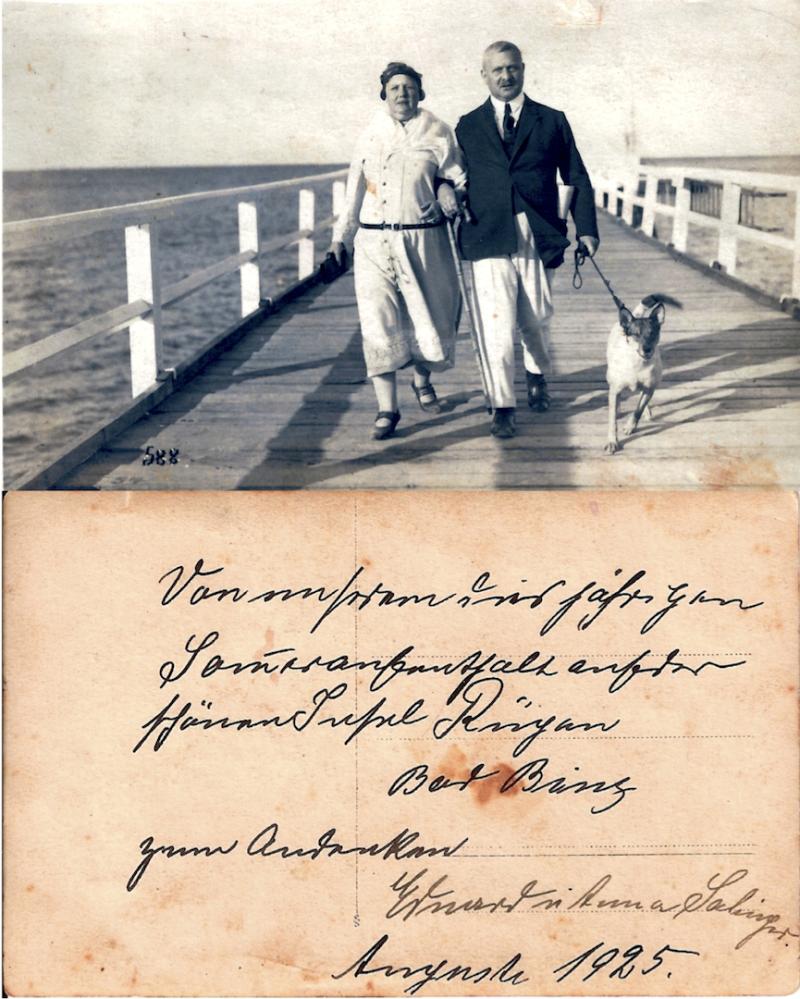 588
Von unserem diesjährigen
Som̅eraufenthalt auf der
schönen Insel Rügen
Bad Binz
zum Andenken
Eduard u Anna Salinger.
Auguste 1925.